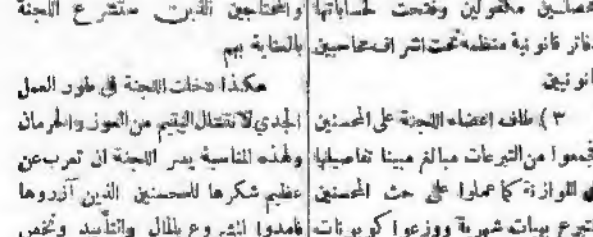 عصاميين مكفولين وفتحت لحساباتها
دفاتر قانونية منظمة تحت اشراف محاسبين
قانونيين
٣ ) طاف اعضاء اللجنة على المحسنين
فجمعوا من التبرعات مبالغ مبينا تفاصيلها
في الموازنة كما عملوا على حث المحسنين
لتبرع بهبات شهرية ووزعوا كوبونات
والمحتاجين الذين ستشرع اللجنة
بالعناية بهم
هكذا دخلت اللجنة في طور العمل
الجدي لانتشال اليتيم من العوز والحرمان
ولهذه المناسبة يسر اللجنة ان تعرب عن
عظيم شكرها للمحسنين الذين آزروها
فامدوا المشروع بالمال والتأييد وتخص